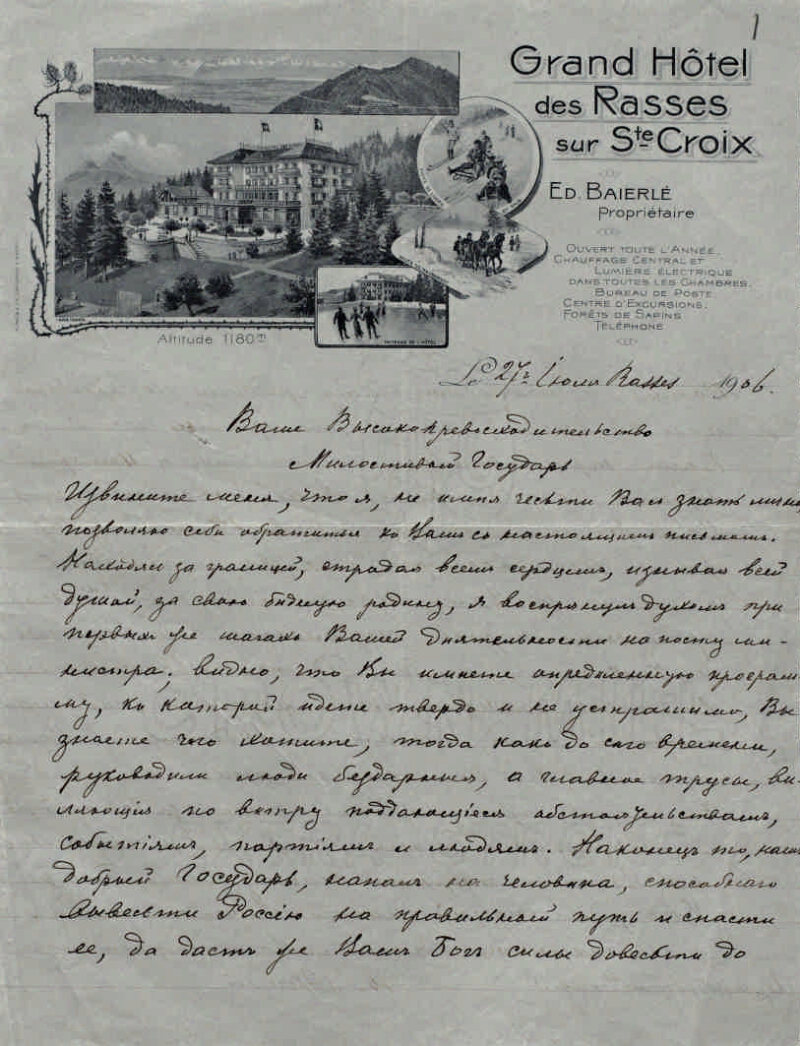 1
Grand Hôtel
des Rasses
sur Ste Croix
Ed. Baierlé
Propriétaire
Ouvert toute l'année.
Chauffage Central et
Lumière électrique
dans toutes les chambres.
Bureau de Poste.
Centre d'Excursions.
Forêts de Sapins
Téléphone
Altitude 1180m
Le 27го Iюля Rasses 1906.
Ваше Высокопревосходительство
Милостивый Государь
Извините меня, что я, не имѣя чести Вас знать лично,
позволяю себѣ обратиться къ Вамъ съ настоящимъ письмомъ.
за границей, страдая всемъ сердцемъ, изнывая всей
душой, за свою бѣдную родину, я воспрянулъ духомъ при
первыхъ же шагахъ Вашей дѣятельности на посту ми-
нистра; видно, что Вы имѣете определенную програм-
му, къ которой идете твердо и не устрашимо, Вы
знаете чего хотите, тогда какъ до сего времени,
руководили люди бездарные, а главное трусы, ви-
ляющiя по ветру поддающiеся обстоятельствамъ,
событiямъ, партiямъ и людямъ. Наконецъ то, нашъ
добрый Государь, напалъ на человѣка, способнаго
вывести Россiю на правильный путь и спасти
ее, да дастъ же Вамъ Богъ силы довести до